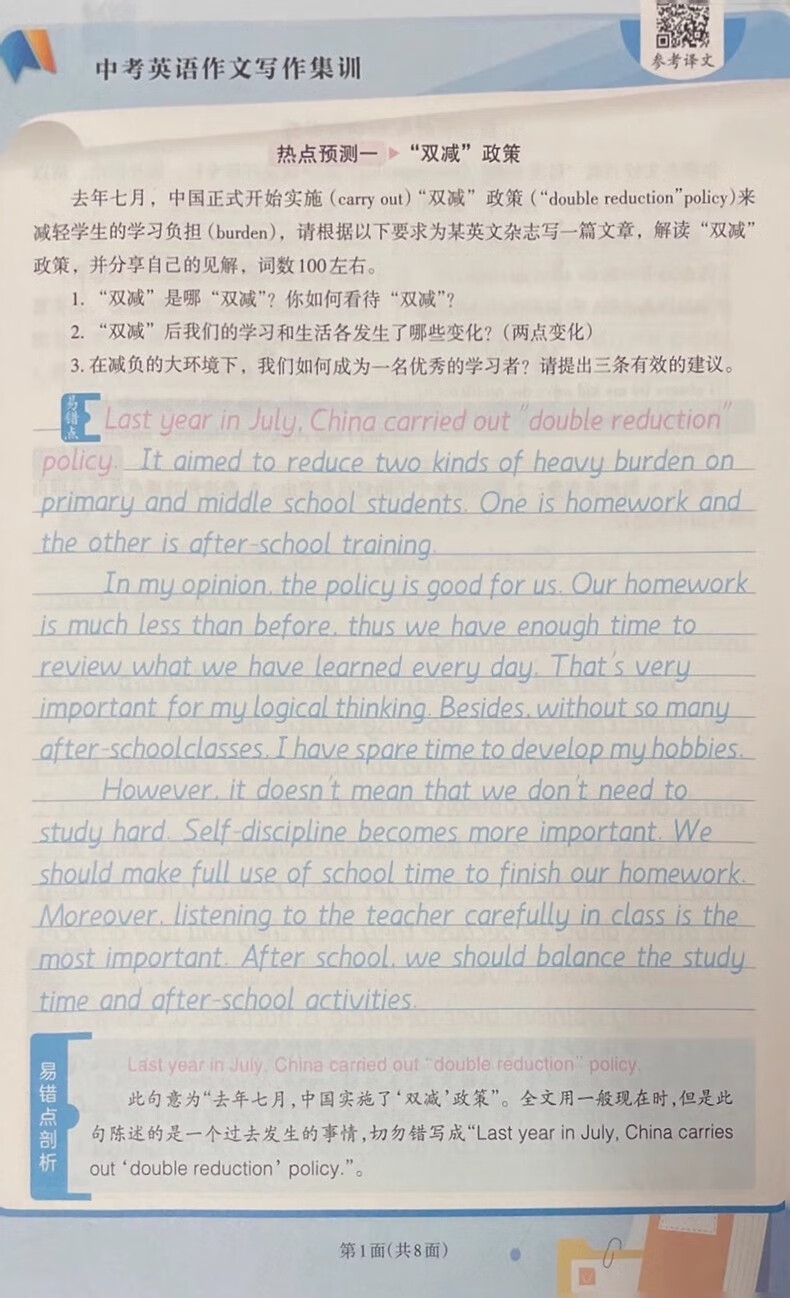 参考译文
中考英语作文写作集训
热点预测一 ▶ “双减”政策
去年七月，中国正式开始实施 (carry out) “双减”政策 (“double reduction”policy)来
减轻学生的学习负担 (burden)，请根据以下要求为某英文杂志写一篇文章，解读“双减”
政策，并分享自己的见解，词数100左右。
1. “双减”是哪“双减”？你如何看待“双减”？
2. “双减”后我们的学习和生活各发生了哪些变化？(两点变化)
3. 在减负的大环境下，我们如何成为一名优秀的学习者？请提出三条有效的建议。
易错点
Last year in July, China carried out "double reduction"
policy. It aimed to reduce two kinds of heavy burden on
primary and middle school students. One is homework and
the other is after-school training.
In my opinion, the policy is good for us. Our homework
is much less than before, thus we have enough time to
review what we have learned every day. That's very
important for my logical thinking. Besides, without so many
after-schoolclasses, I have spare time to develop my hobbies.
However, it doesn't mean that we don't need to
study hard. Self-discipline becomes more important. We
should make full use of school time to finish our homework.
Moreover, listening to the teacher carefully in class is the
most important. After school, we should balance the study
time and after-school activities.
易错点剖析
Last year in July, China carried out “double reduction” policy.
此句意为“去年七月,中国实施了‘双减’政策”。全文用一般现在时,但是此
句陈述的是一个过去发生的事情,切勿错写成“Last year in July, China carries
out ‘double reduction’ policy.”。
第1面(共8面)